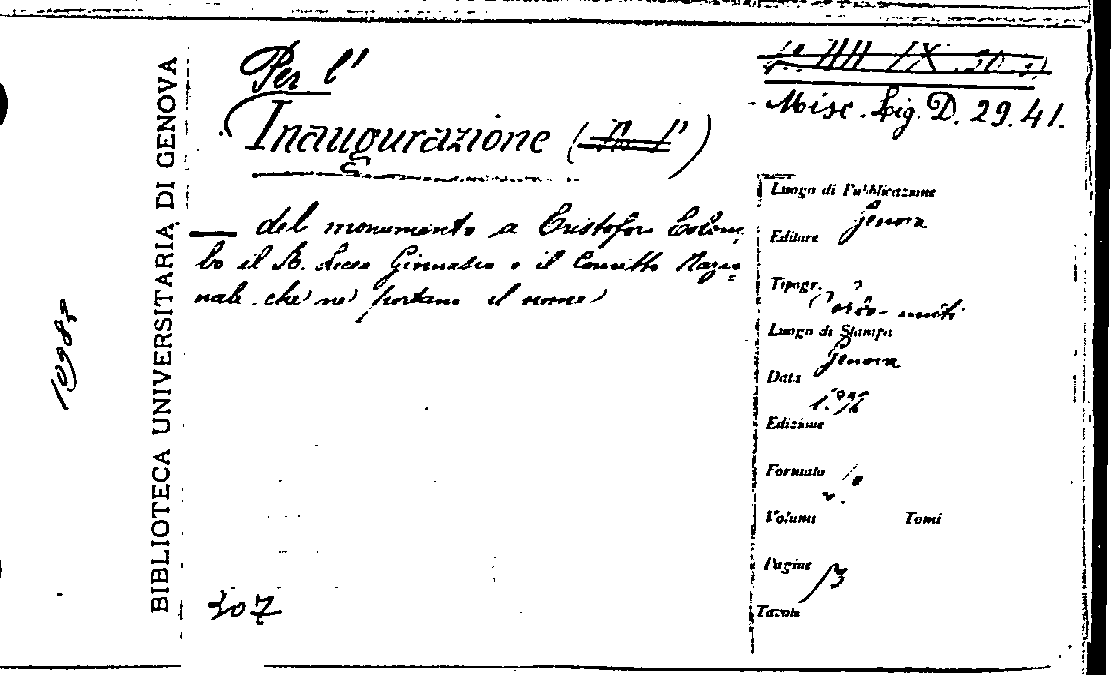 BIBLIOTECA UNIVERSITARIA DI GENOVA
10983
Per l'
Inaugurazione (
)
Misc. Lig. D. 29.41.
— del monumento a Cristoforo Colom-
bo il R. Liceo Ginnasio e il Convitto Nazio=
nale che ne portano il nome
307
Luogo di Pubblicazione
Genova
Editore
Tipogr.
Luogo di Stampa
Genova
Data
Edizione
Formato
Volumi Tomi
Pagine
13
Tavole